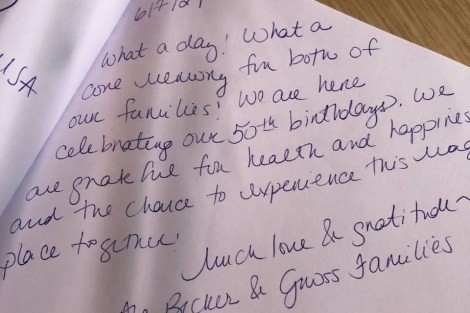 6/7/21
USA
What a day! What a
core memory for both of
our families! We are here
celebrating our 50th birthdays. We
are grateful for health and happines
and the chance to experience this mag
place together!
Much love & gratitude~
Becker & Gross Families